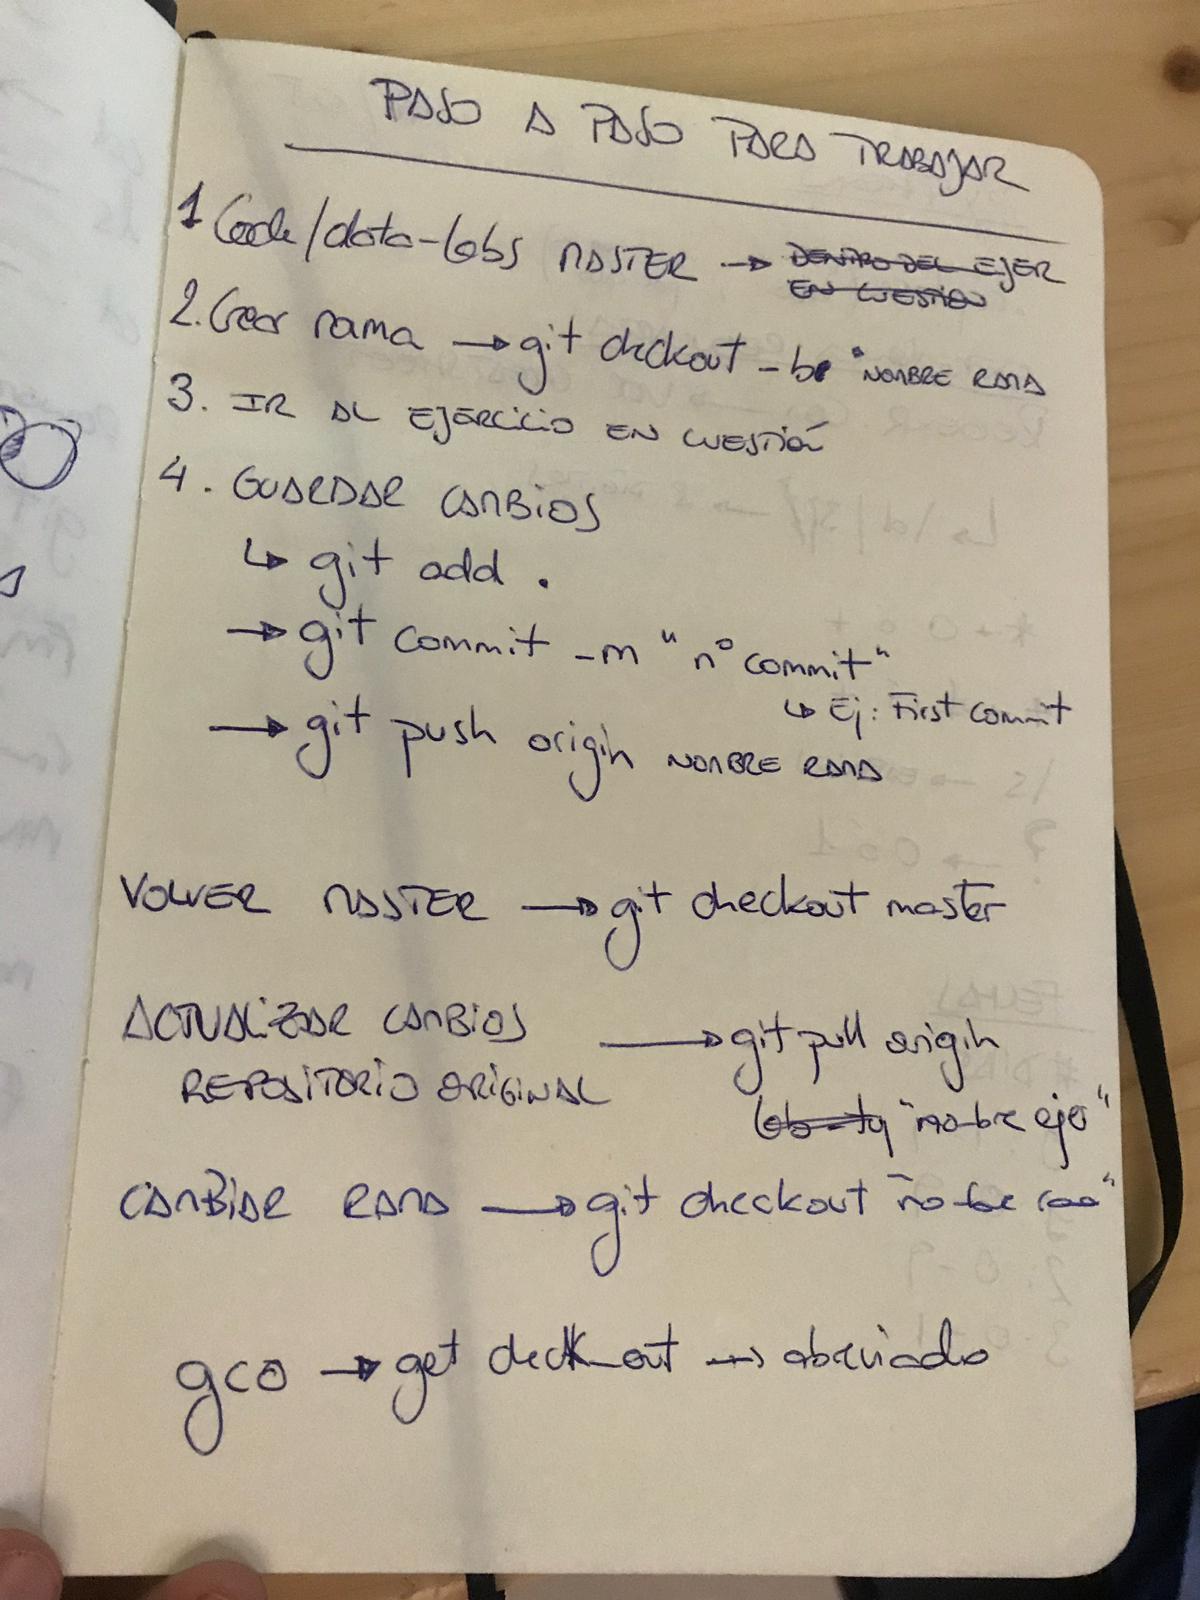 PASO A PASO PARA TRABAJAR
1 Code/data-labs MASTER → DENTRO DEL EJER
EN CUESTIÓN
2. Crear rama → git checkout -b "NOMBRE RAMA
3. IR AL EJERCICIO EN CUESTIÓN
4. GUARDAR CAMBIOS
↳ git add .
→ git commit -m "nº commit"
↳ Ej: First commit
→ git push origin NOMBRE RAMA
VOLVER MASTER → git checkout master
ACTUALIZAR CAMBIOS → git pull origin
REPOSITORIO ORIGINAL
"nombre ejer"
CAMBIAR RAMA → git checkout "nombre rama"
gco → get checkout → abreviado